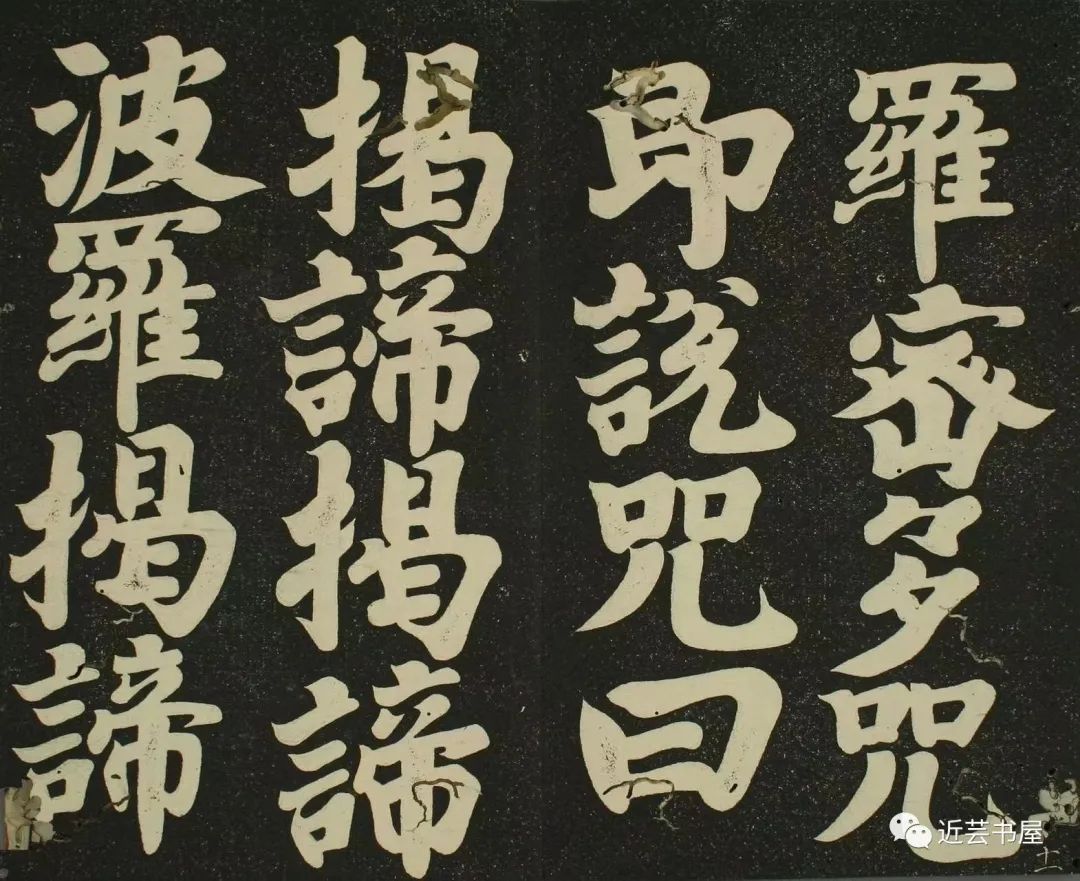 羅蜜多咒
即說咒曰
揭諦揭諦
波羅揭諦
十一
近芸书屋